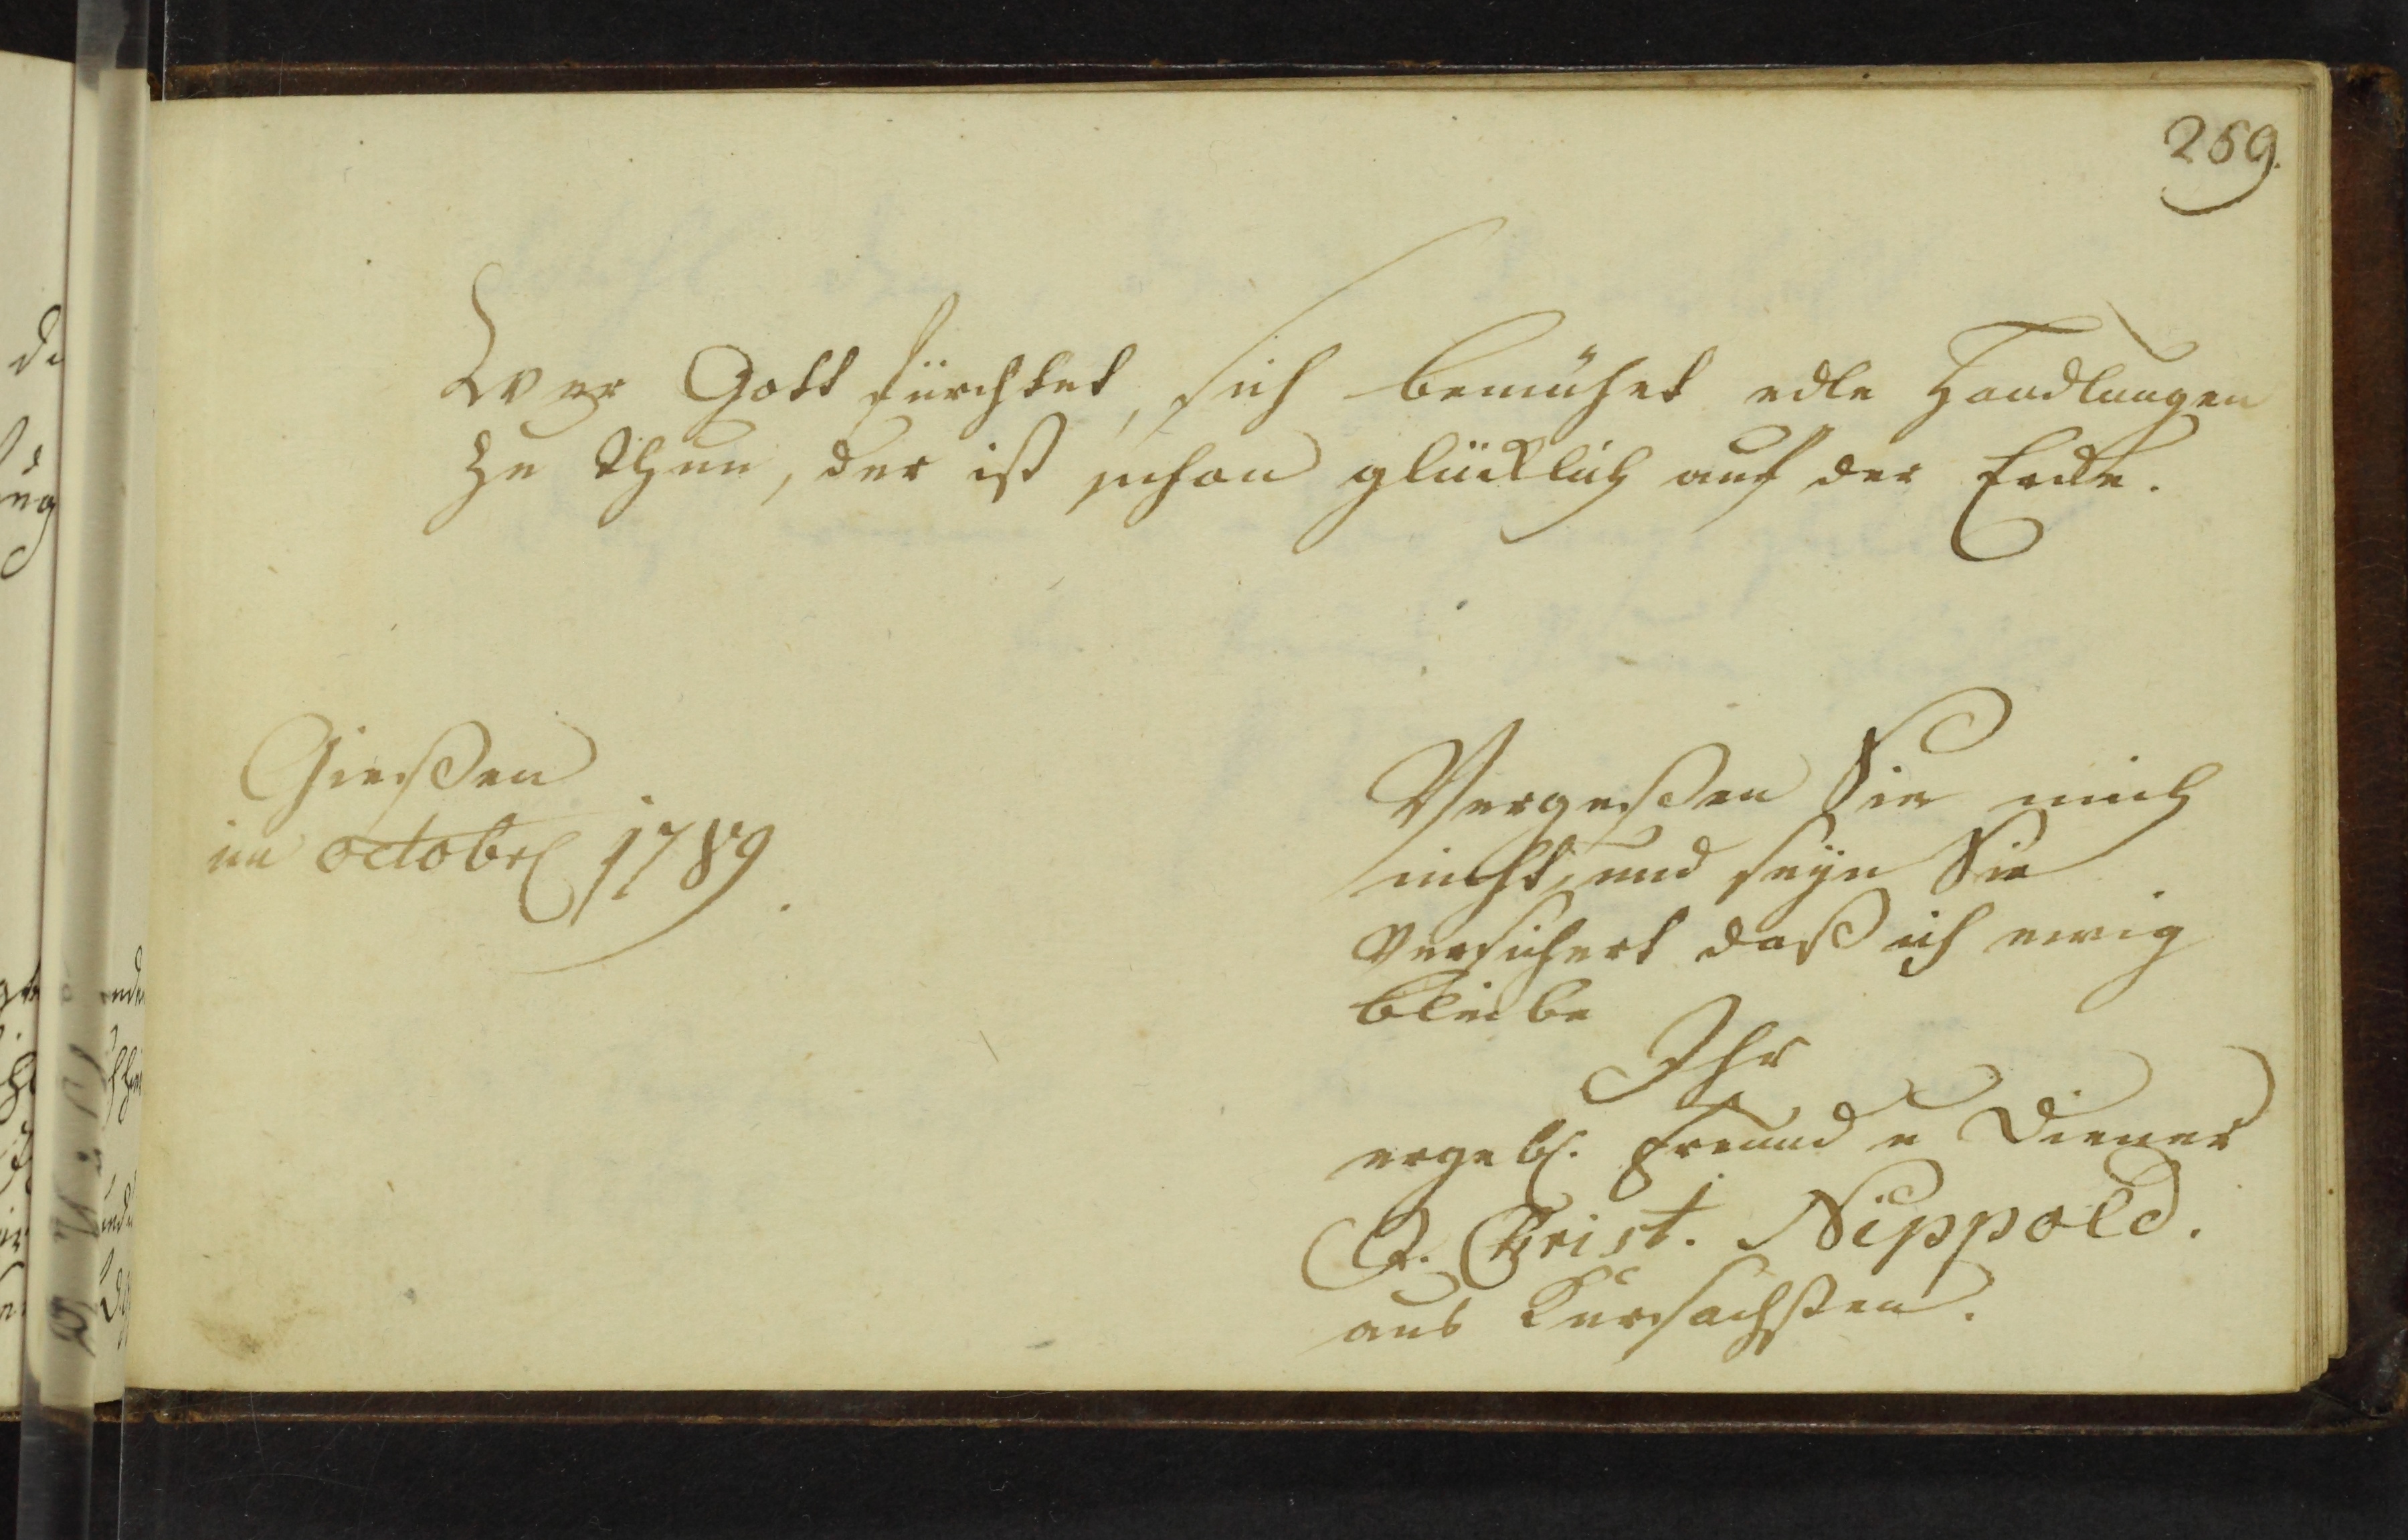 259.
Wer Gott fürchtet, sich bemühet edle Handlungen
zu thun, der ist schon glücklich auf der Erde.
Gießen
im octobr 1789.
Vergeßen Sie mich
nicht, und seyn Sie
versichert daß ich ewig
bleibe
Ihr
ergeb. Freund u Diener
Christ. Nippold.
aus Kursachßen.